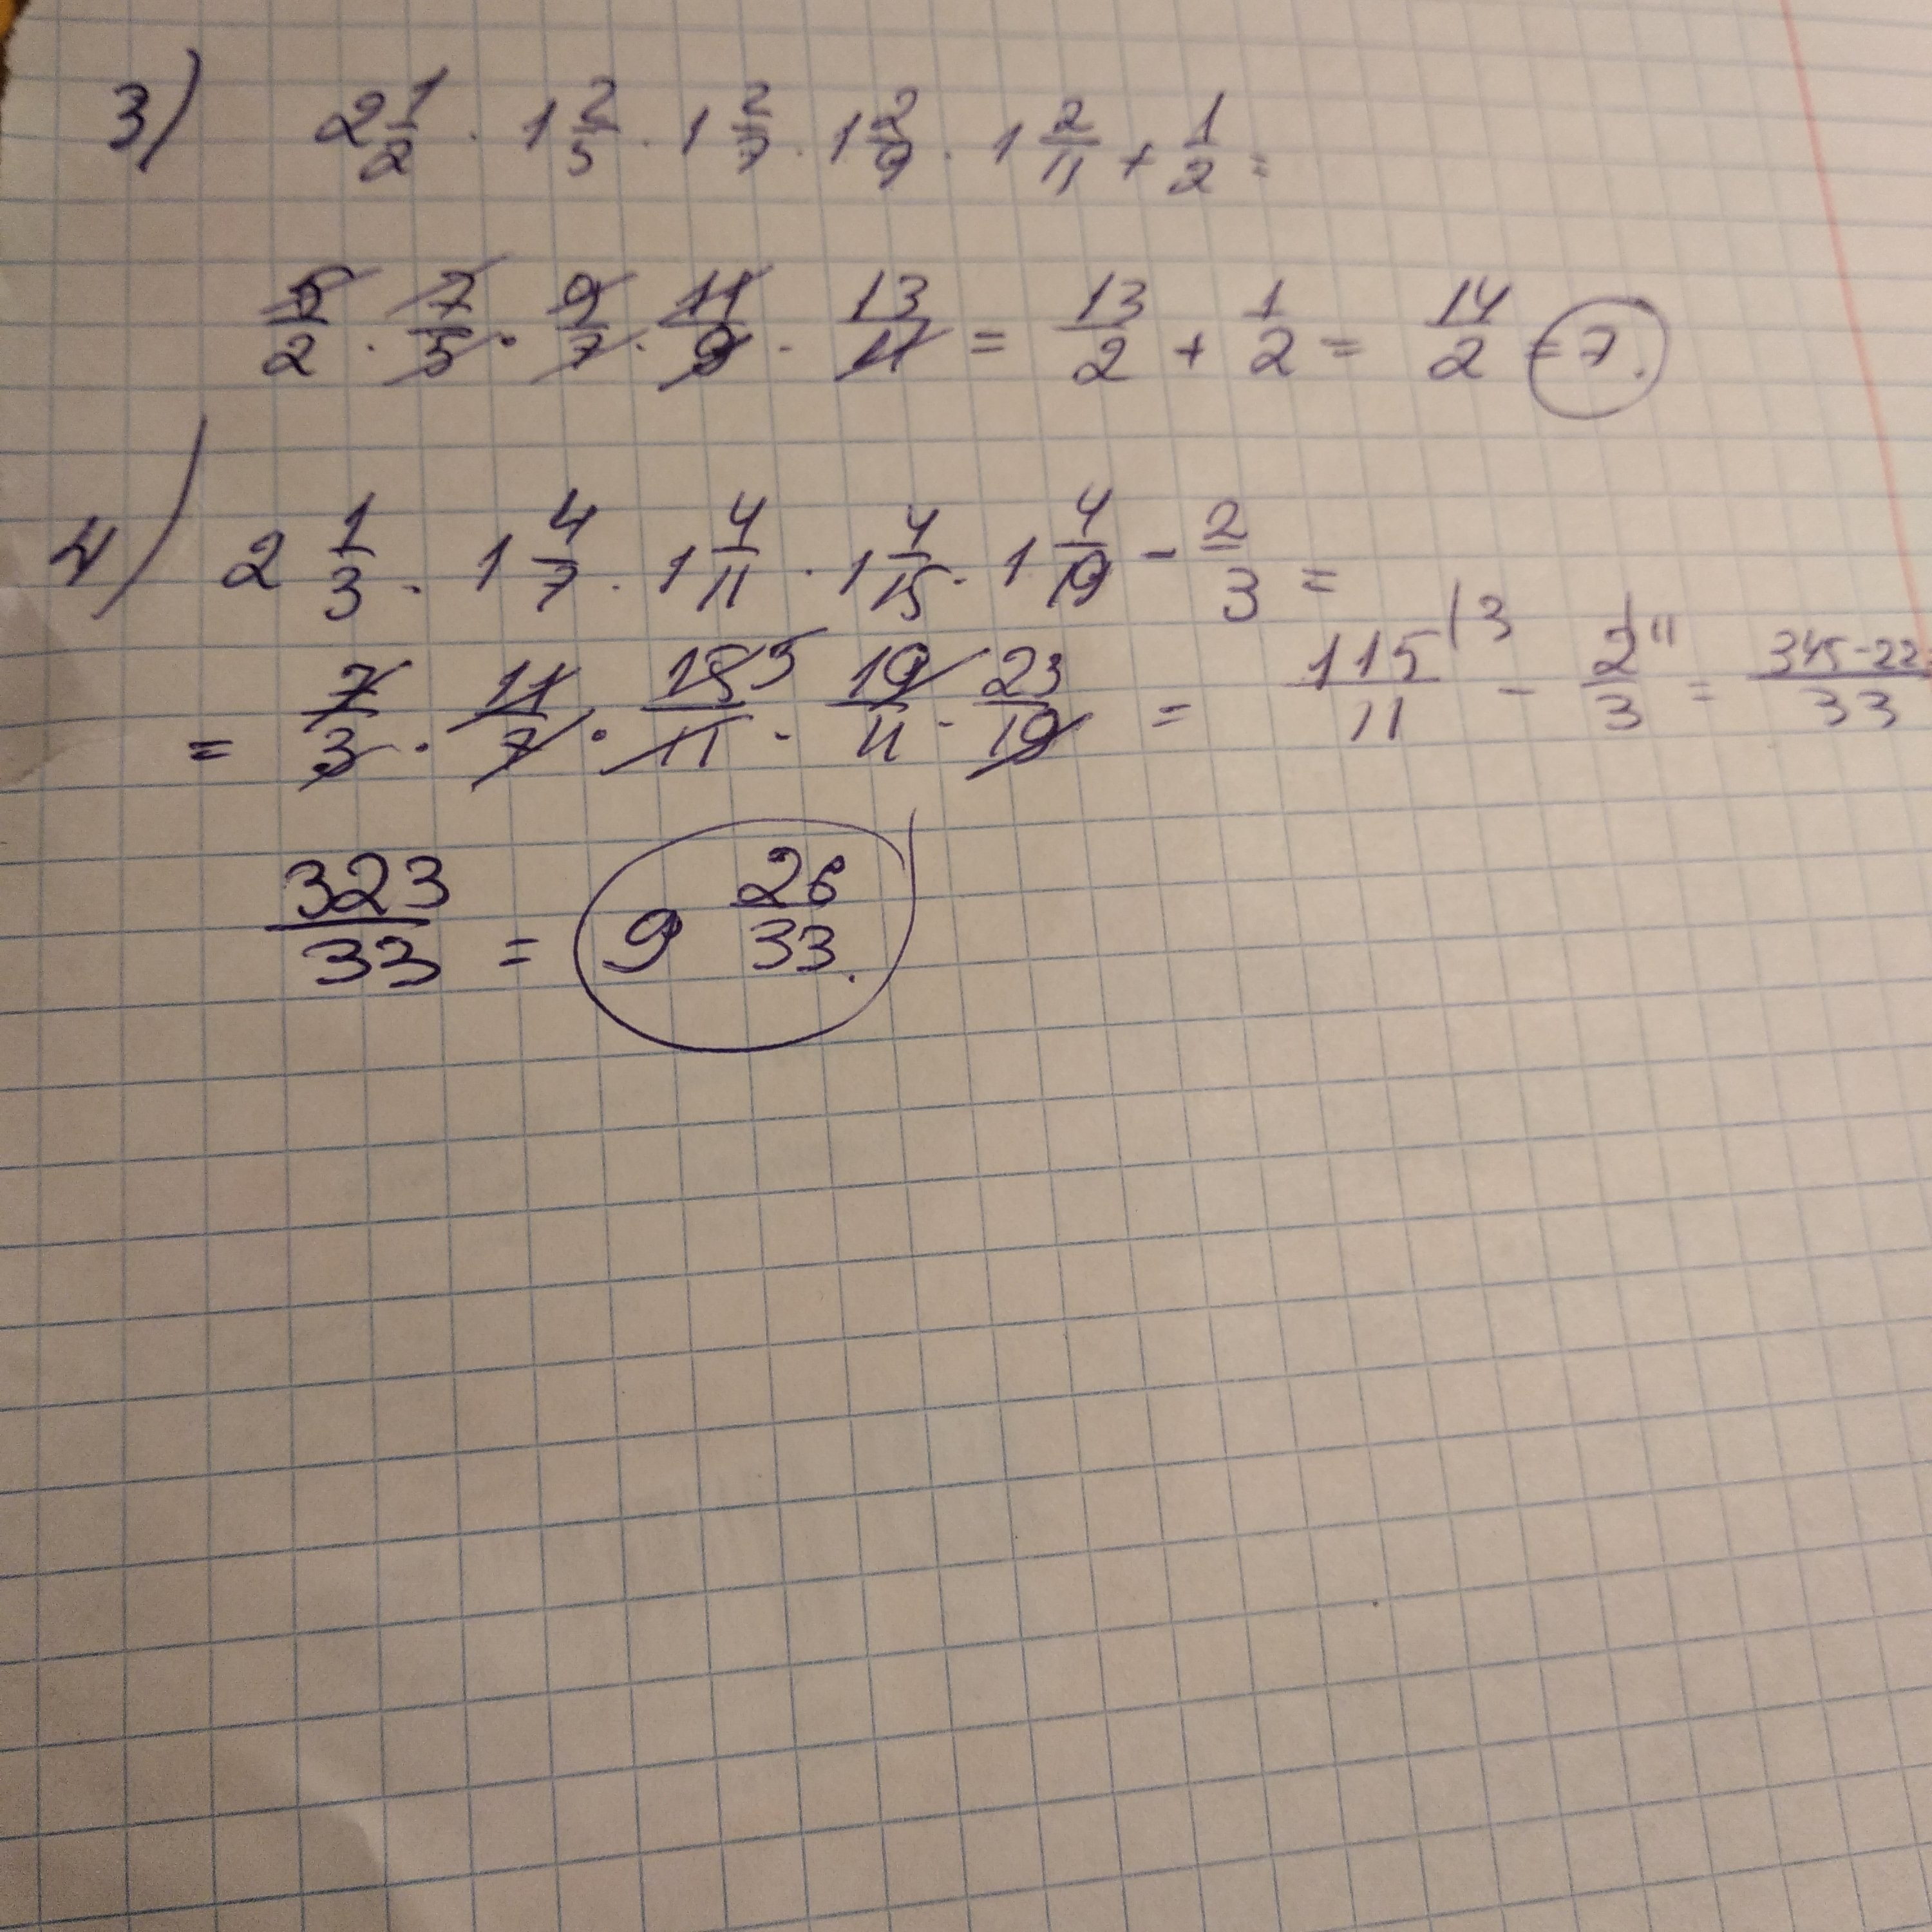 3) 2 1/2 · 1 2/5 · 1 2/7 · 1 2/9 · 1 2/11 + 1/2 =
5/2 · 7/5 · 9/7 · 11/9 · 13/11 = 13/2 + 1/2 = 14/2 = 7.
4) 2 1/3 · 1 4/7 · 1 4/11 · 1 4/15 · 1 4/19 - 2/3 =
= 7/3 · 11/7 · 15 5/11 · 19/11 · 23/19 = 115/11 |3 - 2/3 |11 = 345-22/33
323/33 = 9 26/33.